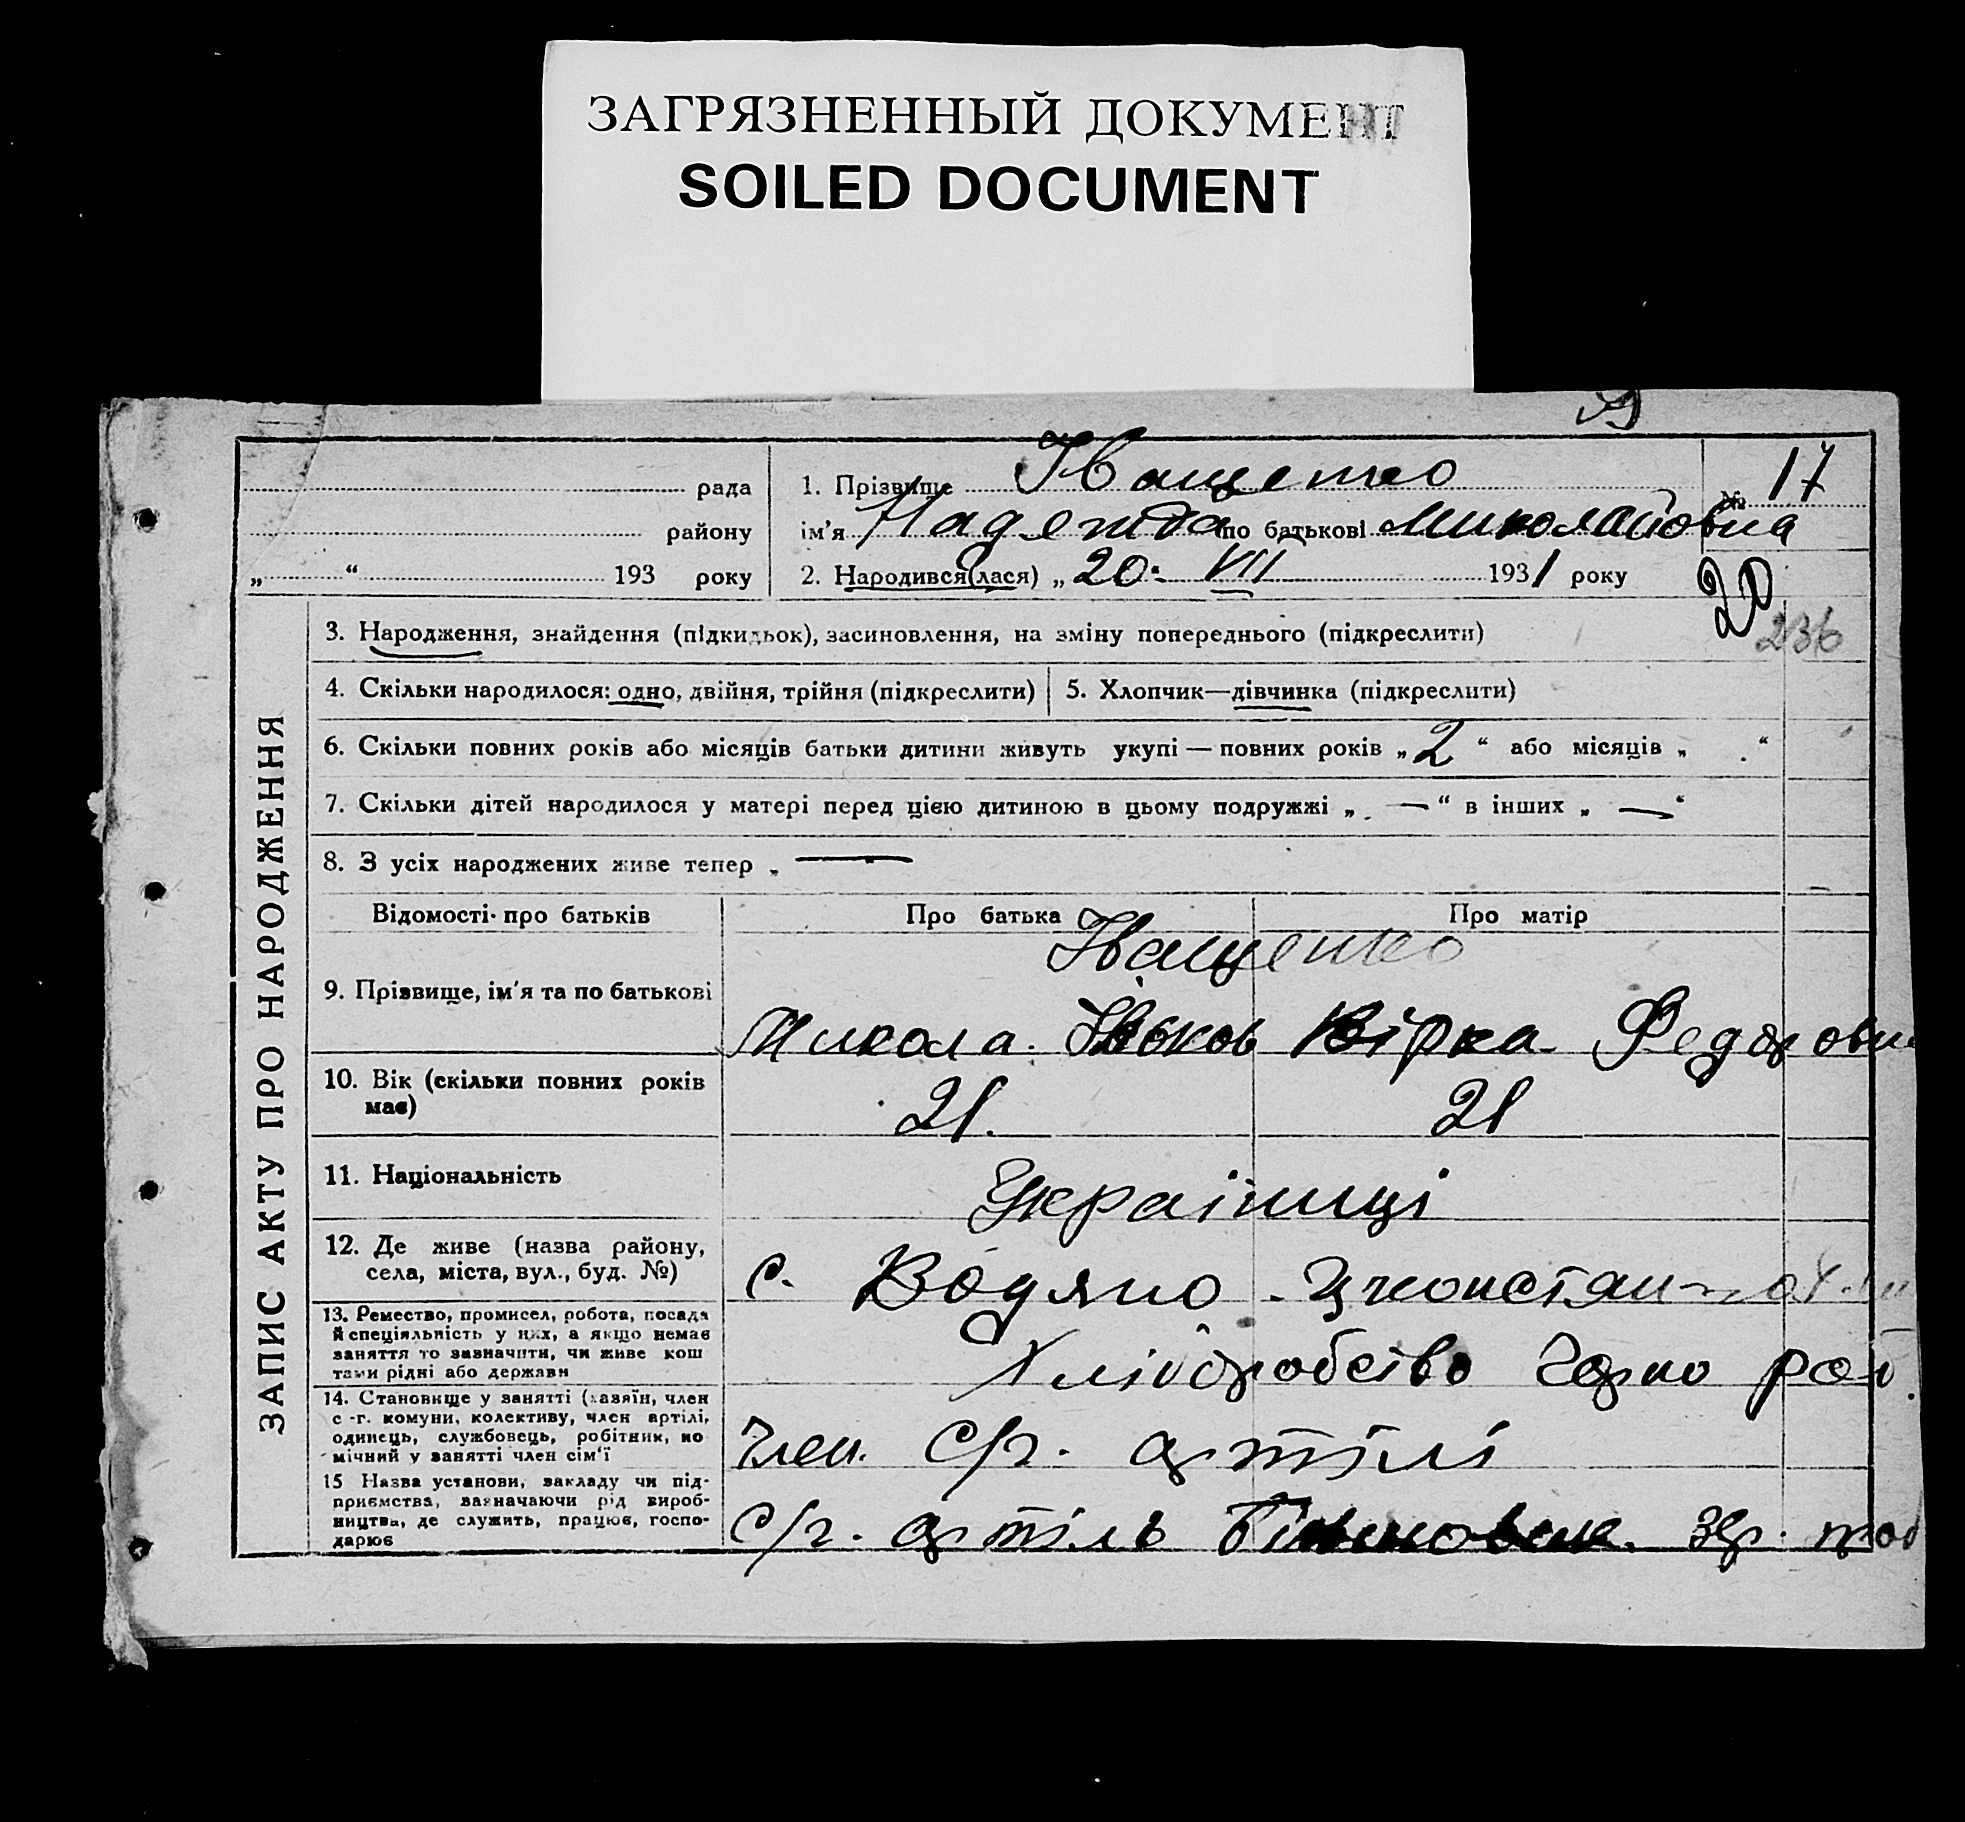 ЗАГРЯЗНЕННЫЙ ДОКУМЕНТ
SOILED DOCUMENT
ЗАПИС АКТУ ПРО НАРОДЖЕННЯ
рада
району
„ “ 193 року
1. Прізвище Іващенко
№ 17
ім'я Надежда по батькові Миколайовна
2. Народився(лася) „ 20 “ VII 1931 року
20
236
3. Народження, знайдення (підкидьок), засиновлення, на зміну попереднього (підкреслити)
4. Скільки народилося: одно, двійня, трійня (підкреслити)
5. Хлопчик—дівчинка (підкреслити)
6. Скільки повних років або місяців батьки дитини живуть укупі — повних років „ 2 “ або місяців „ “
7. Скільки дітей народилося у матері перед цією дитиною в цьому подружжі „ — “ в інших „ — “
8. З усіх народжених живе тепер „ —
Відомості про батьків
Про батька
Про матір
9. Прізвище, ім'я та по батькові
Іващенко
Микола Вірка Федоровна
10. Вік (скільки повних років
має)
21. 21
11. Національність
Українці
12. Де живе (назва району,
села, міста, вул., буд. №)
с. Водяно
13. Ремество, промисел, робота, посада
й спеціяльність у них, а якщо немає
заняття то зазначити, чи живе кош
тами рідні або держави
Хліборобство
14. Становище у занятті (хазяїн, член
с.-г. комуни, колективу, член артілі,
одинець, службовець, робітник, по
мічний у занятті член сім'ї
Член с/г. артілі
15 Назва установи, закладу чи під-
приємства, зазначаючи рід вироб-
ництва, де служить, працює, госпо-
дарює
с/г. артіль